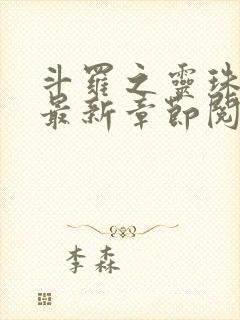 斗羅之靈珠
最新章節閱
李森